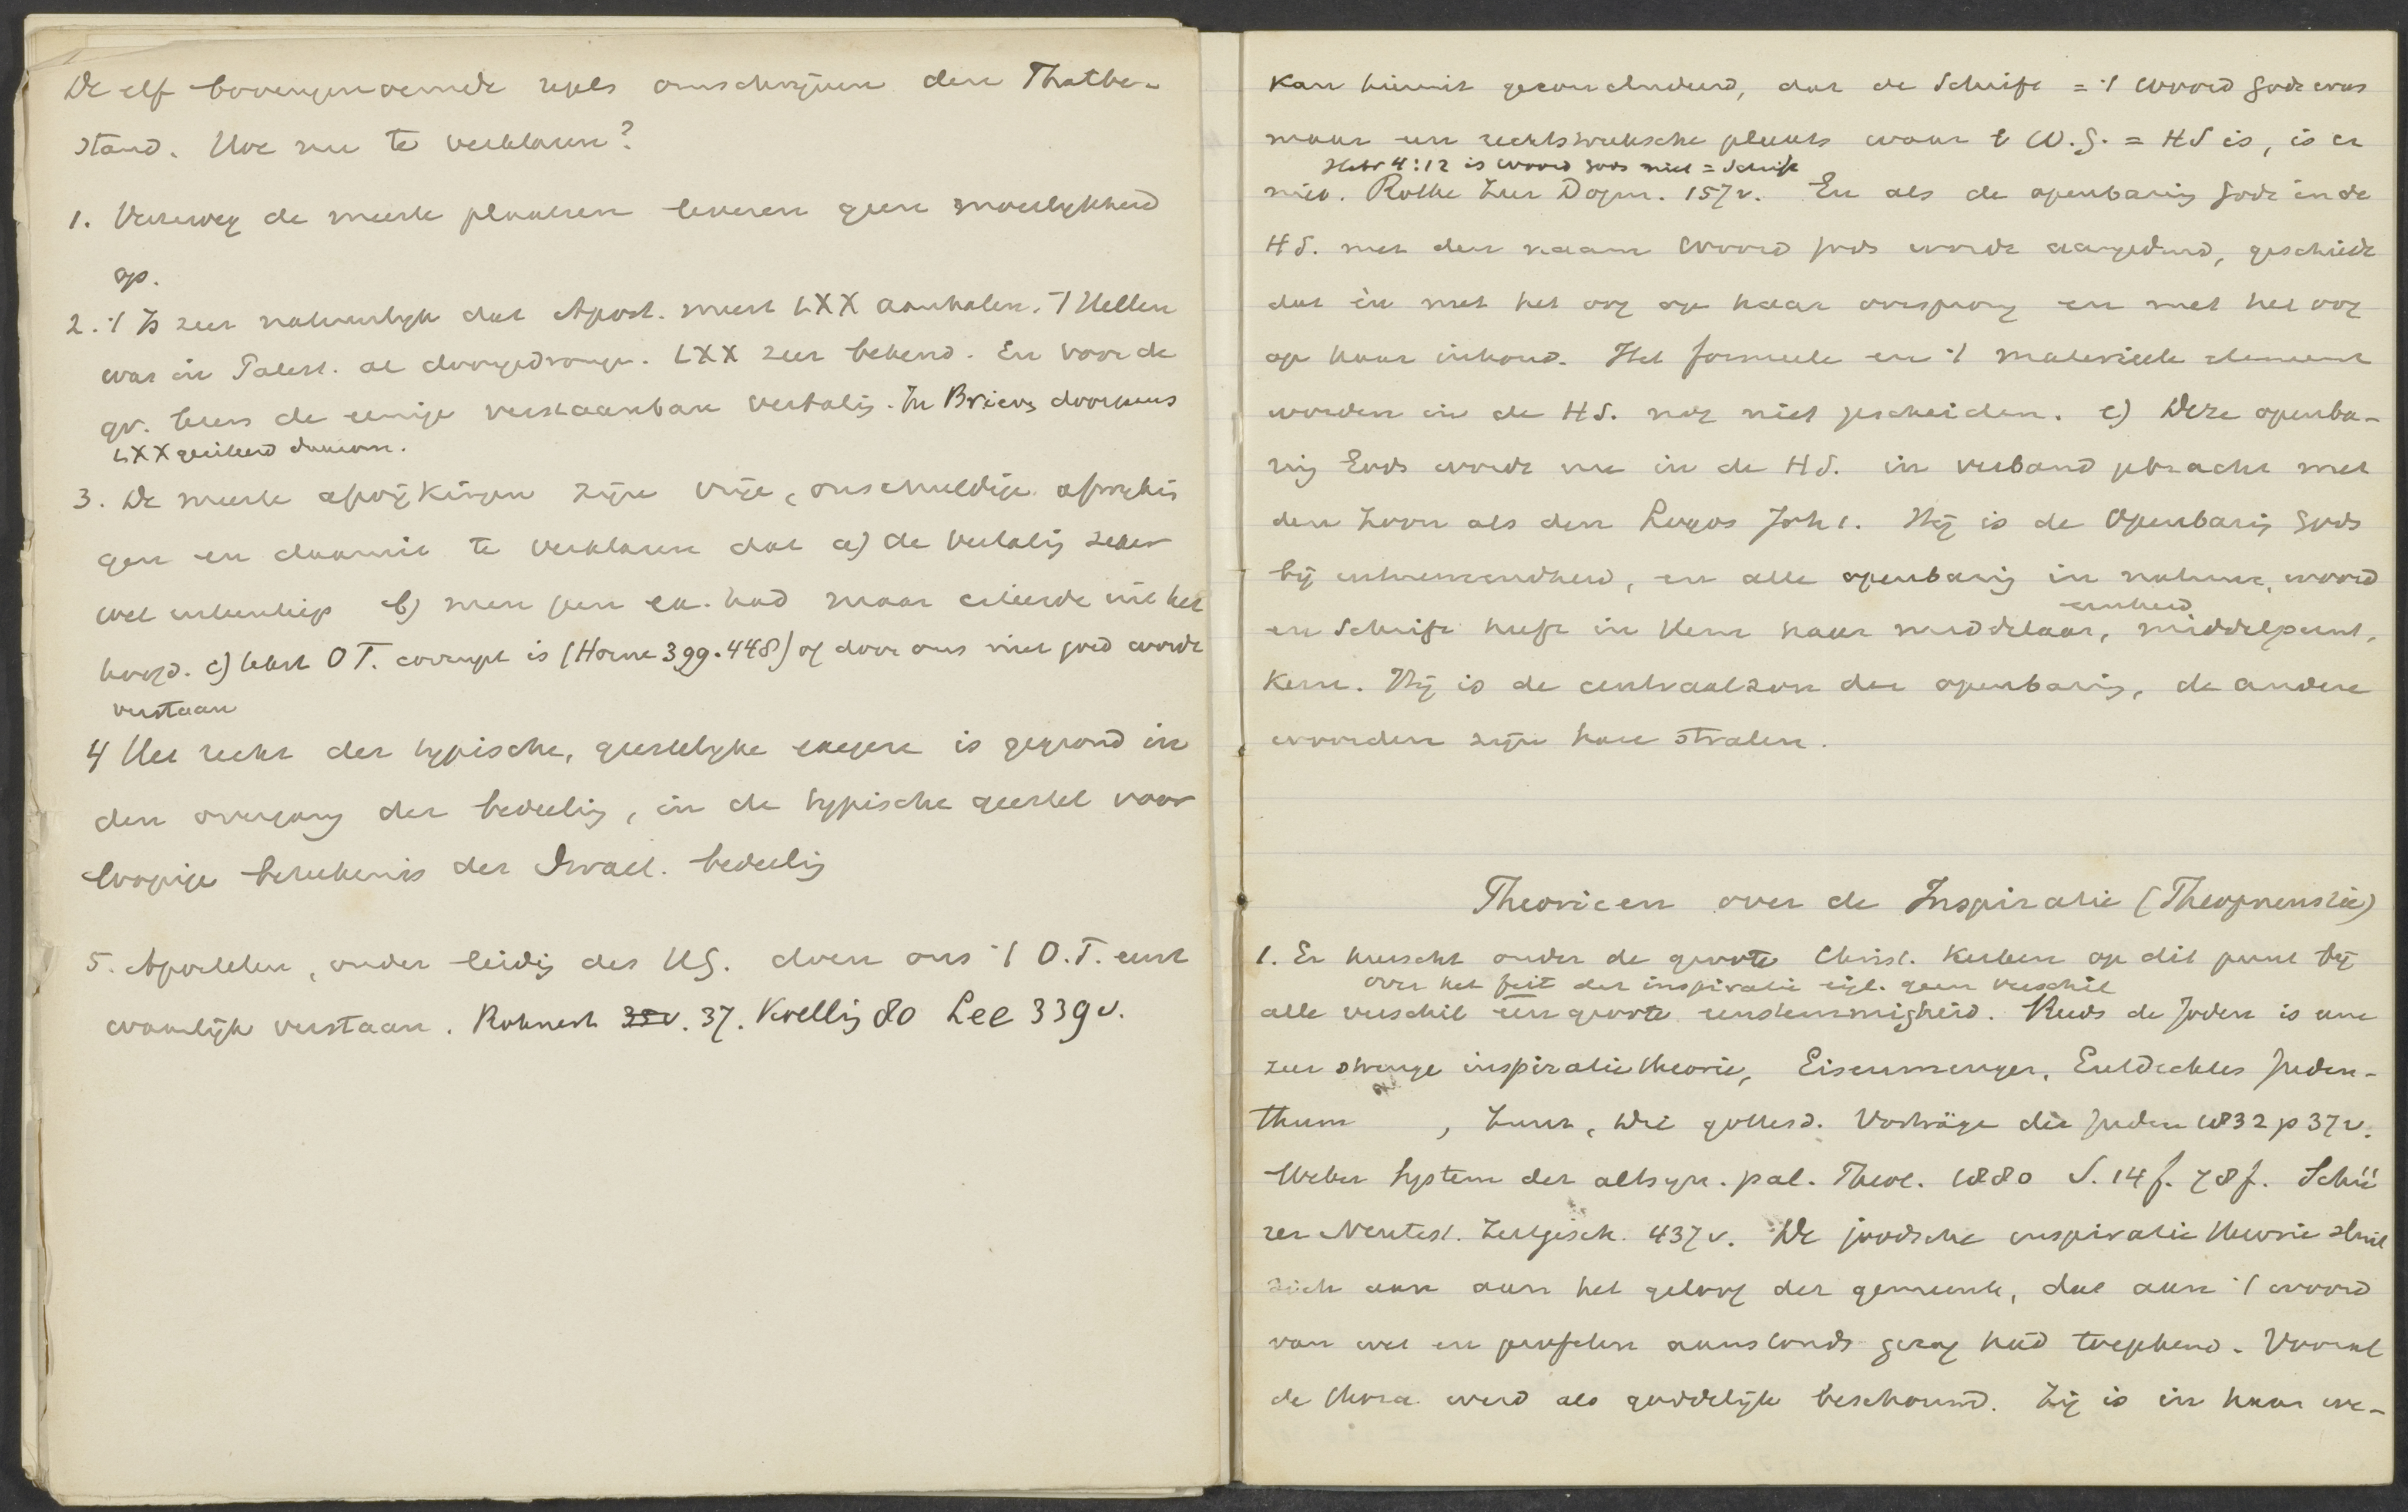 De elf bovengenoemde regels omschrijven den Thatbe-
stand. Hoe nu te verklaren?
1. Verreweg de meeste plaatsen leveren geen moeilijkheid
op.
2. 't Is zeer natuurlijk dat Apost. meest LXX aanhalen. 't Hellen
was in Palest. al doorgedrongen. LXX zeer bekend. En voor de
gr. lezers de eenige verstaanbare vertaling. In Brieven doorgaans
LXX geciteerd daarom.
3. De meeste afwijkingen zijn vrije, onschuldige afwijkin
gen en daaruit te verklaren dat a) de vertaling zeker
wel b) men geen ex. had maar citeerde uit het
hoofd. c) tekst O T. corrupt is (Horne 399.448) of door ons niet goed wordt
verstaan
4 Het recht der typische, geestelijke exegese is gegrond in
den overgang der bedeeling, in de typische geestel voor
loopige beteekenis der Israel. bedeeling
5. Apostelen, onder leiding des HG. doen ons 't O.T. eerst
waarlijk verstaan. Rohnert 35v. 37. Koelling 80 Lee 339v.
kan hieruit geconcludeerd, dat de Schrift = 't Woord Gods was
maar een rechtstreeksche plaats waar 't W.G. = HS is, is er
Hebr 4:12 is woord Gods niet = Schrift
niet. Rothe Zur Dogm. 157v. En als de openbaring Gods in de
HS. met den naam Woord Gods wordt aangeduid, geschiedt
dat èn met het oog op haar oorsprong en met het oog
op haar inhoud. Het formeele en 't materieele element
worden in de HS. nog niet gescheiden. c) Deze openba-
ring Gods wordt nu in de HS. in verband gebracht met
den Zoon als den Logos Joh 1. Hij is de Openbaring Gods
bij uitnemendheid, en alle openbaring in natuur, woord
eenheid
en Schrift heeft in Hem haar middelaar, middelpunt,
kern. Hij is de centraalzon der openbaring, de andere
woorden zijn haar stralen.
Theorieen over de Inspiratie (Theopneustie)
1. Er heerscht onder de groote Christ. Kerken op dit punt bij
over het feit der inspiratie eigl. geen verschil
alle verschil een groote eenstemmigheid. Reeds de Joden is een
zeer strenge inspiratietheorie, Eisenmenger, Entdecktes Juden-
thum , Zunz, Die gottesd. Vorträge der Juden 1832 p 37v.
Weber System der altsyn. pal. Theol. 1880 S. 14f. 78f. Schü
rer Neutest. Zeitgesch. 437v. De joodsche inspiratie theorie sluit
zich aan aan het geloof der gemeente, dat aan 't woord
van wet en profeten aanstonds gezag had toegekend. Vooral
de thora werd als goddelijk beschouwd. Zij is in haar we-